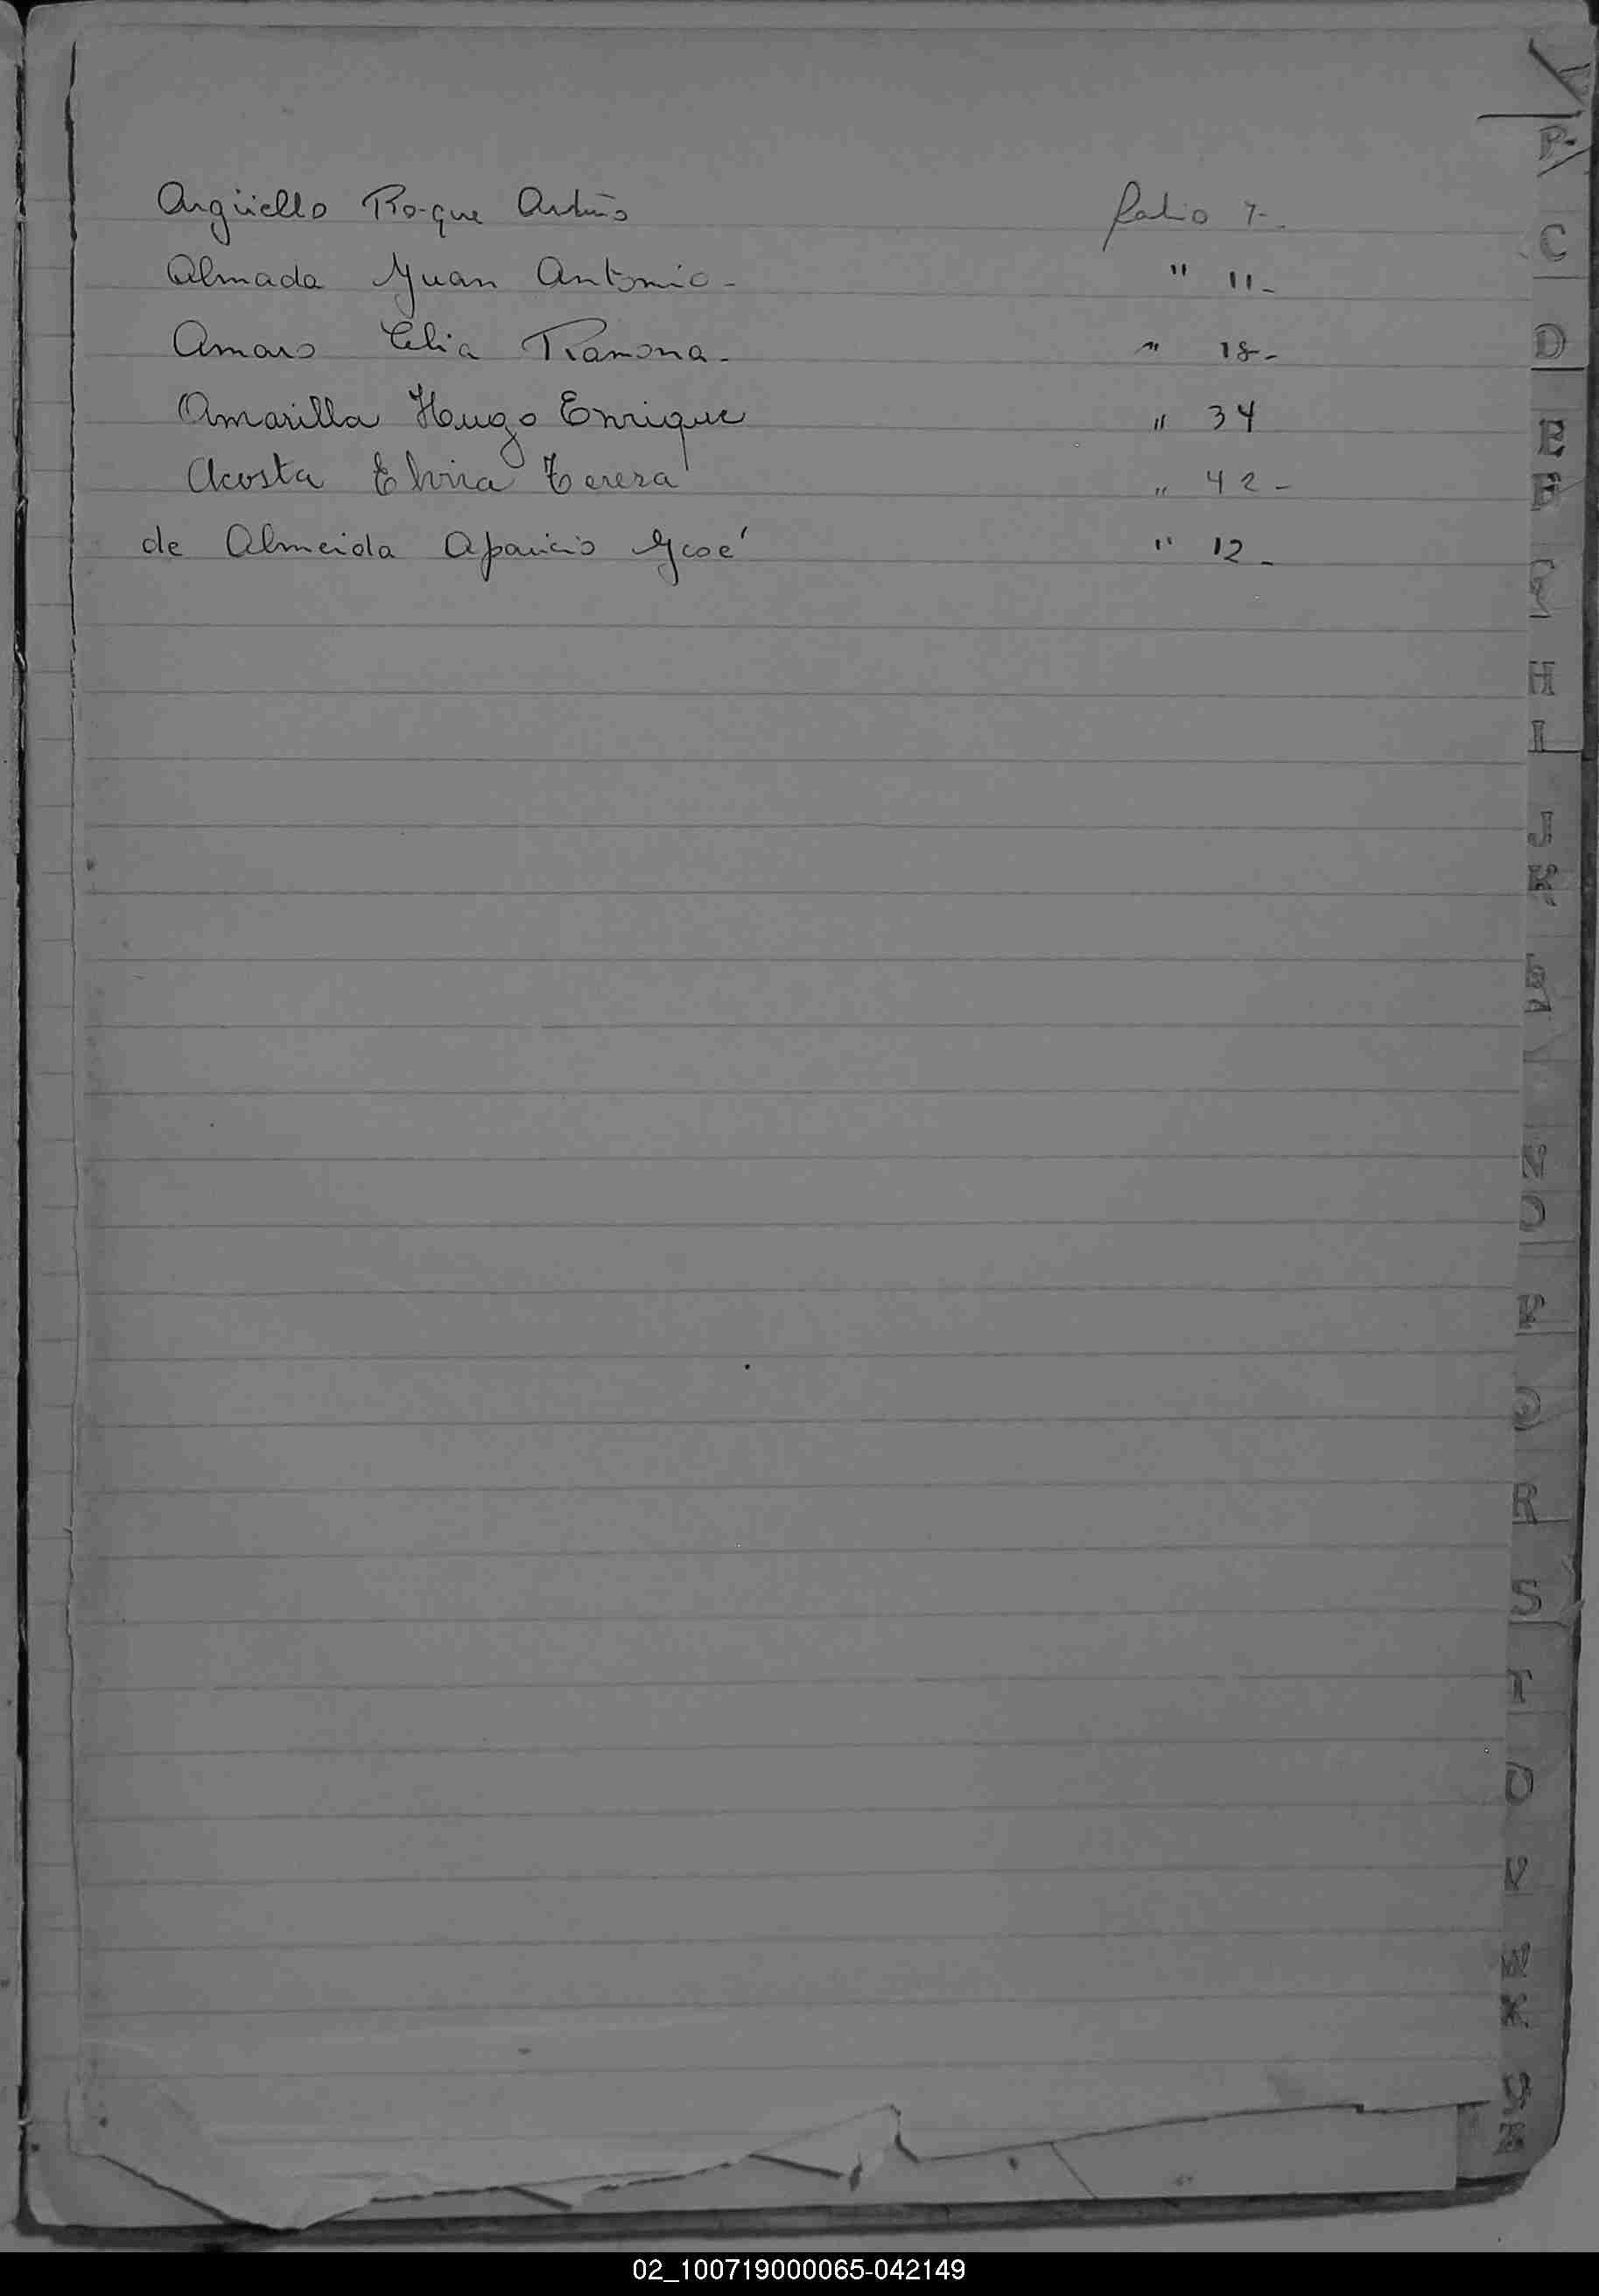 Argüello Roque Arturo folio 7-
Almada Juan Antonio - " 11-
Amaro Celia Ramona - " 18-
Amarilla Hugo Enrique " 34
Acosta Elvira Teresa " 42-
de Almeida Aparicio José " 12-
C
D
E
F
G
H
I
J
K
L
N
O
P
Q
R
S
T
U
V
W
X
02_100719000065-042149